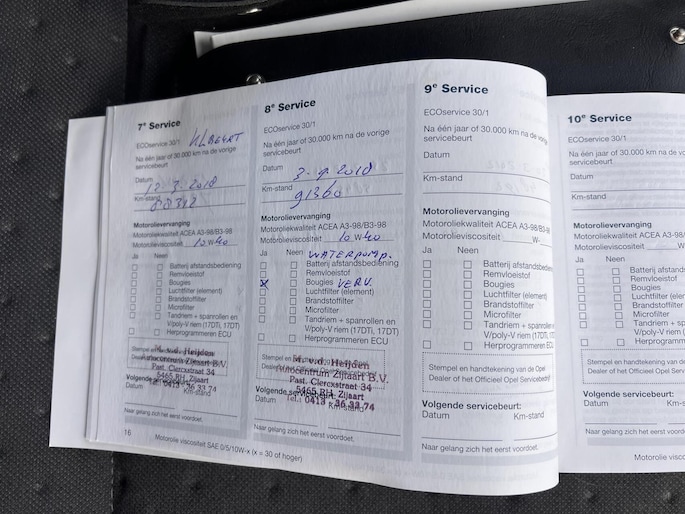 7e Service
ECOservice 30/1
KLBEURT
Na één jaar of 30.000 km na de vorige
servicebeurt
Datum
12.3.2018
Km-stand
Motorolievervanging
Motoroliekwaliteit ACEA A3-98/B3-98
Motorolieviscositeit 10 W 40
Ja Neen
Batterij afstandsbediening
Remvloeistof
Bougies
Luchtfilter (element)
Brandstoffilter
Microfilter
Tandriem + spanrollen en
V/poly-V riem (17DTi, 17DT)
Herprogrammeren ECU
M. v.d. Heijden
Autocentrum Zijtaart B.V.
Past. Clercxstraat 34
5465 RH Zijtaart
Tel.: 0413 - 36 33 74
Volgende servicebeurt:
Datum Km-stand
Naar gelang zich het eerst voordoet.
16
Motorolie viscositeit SAE 0/5/10W-x (x = 30 of hoger)
8e Service
ECOservice 30/1
Na één jaar of 30.000 km na de vorige
servicebeurt
Datum
3.9.2018
Km-stand
91360
Motorolievervanging
Motoroliekwaliteit ACEA A3-98/B3-98
Motorolieviscositeit 10 W 40
Ja Neen WATERPOMP.
Batterij afstandsbediening
Remvloeistof
x Bougies VERV.
Luchtfilter (element)
Brandstoffilter
Microfilter
Tandriem + spanrollen en
V/poly-V riem (17DTi, 17DT)
Herprogrammeren ECU
M. v.d. Heijden
Autocentrum Zijtaart B.V.
Past. Clercxstraat 34
5465 RH Zijtaart
Tel.: 0413 - 36 33 74
Volgende servicebeurt:
Datum Km-stand
Naar gelang zich het eerst voordoet.
9e Service
ECOservice 30/1
Na één jaar of 30.000 km na de vorige
servicebeurt
Datum
Km-stand
Motorolievervanging
Motoroliekwaliteit ACEA A3-98/B3-98
Motorolieviscositeit W-
Ja Neen
Batterij afstandsbediening
Remvloeistof
Bougies
Luchtfilter (element)
Brandstoffilter
Microfilter
Tandriem + spanrollen en
V/poly-V riem (17DTi, 17DT)
Herprogrammeren ECU
Stempel en handtekening van de Opel
Dealer of het Officieel Opel Servicebedrijf
Volgende servicebeurt:
Datum Km-stand
Naar gelang zich het eerst voordoet.
10e Service
ECOservice 30/1
Na één jaar of 30.000 km na de vorige
servicebeurt
Datum
Km-stand
Motorolievervanging
Motoroliekwaliteit ACEA A3-98/B3-98
Motorolieviscositeit W-
Ja Neen
Batterij afstandsb
Remvloeistof
Bougies
Luchtfilter (element
Brandstoffilter
Microfilter
Tandriem + spanro
V/poly-V riem (17D
Herprogrammeren
Stempel en handtekening van de O
Dealer of het Officieel Opel Service
Volgende servicebeurt:
Datum Km-sta
Naar gelang zich het eerst voordoet.
Motorolie visco